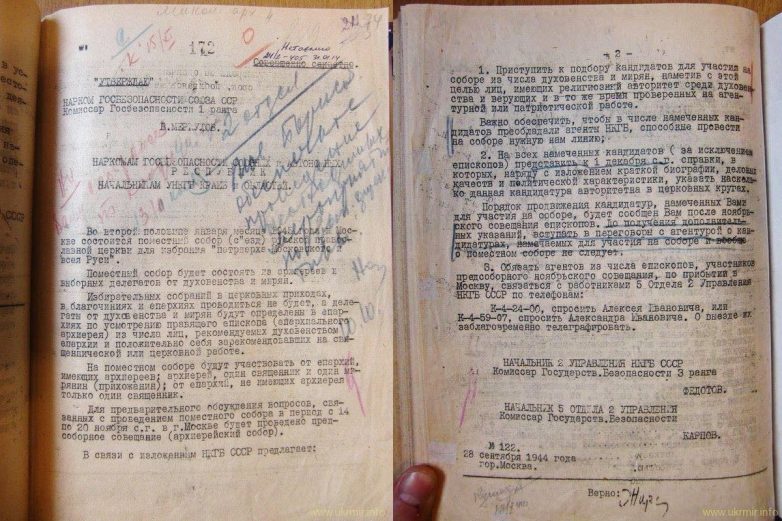 173
Совершенно секретно.
"УТВЕРЖДАЮ"
НАРКОМ ГОСБЕЗОПАСНОСТИ СОЮЗА ССР
Комиссар Госбезопасности 1 ранга
В.МЕРКУЛОВ.
НАРКОМАМ ГОСБЕЗОПАСНОСТИ
РЕСПУБЛИК
НАЧАЛЬНИКАМ УНКГБ КРАЕВ ОБЛАСТЕЙ.
Во второй половине января месяца 1945 в Москве
состоится поместный собор (с"езд) русской православной
церкви для избрания "патриарха Московского и
всея Руси".
Поместный собор будет состоять из архиереев и
выборных делегатов от духовенства и мирян.
Избирательных собраний в церковных приходах,
в благочиниях и епархиях проводиться не будет, а делегаты
от духовенства и мирян будут определены в епархиях
по усмотрению правящего епископа (епархиального
архиерея) из числа лиц, рекомендуемых духовенством
епархии и положительно себя зарекомендовавших на священнической
или церковной работе.
На поместном соборе будут участвовать от епархий,
имеющих архиереев: архиерей, один священник и один мирянин
(прихожанин); от епархий, не имеющих архиерея
только один священник.
Для предварительного обсуждения вопросов, связанных
с проведением поместного собора в период с 14
по 20 ноября с.г. в г.Москве будет проведено предсоборное
совещание (архиерейский собор).
В связи с изложенным НКГБ СССР предлагает:
- 2 -
1. Приступить к подбору кандидатов для участия на
соборе из числа духовенства и мирян, наметив с этой
целью лиц, имеющих религиозный авторитет среди духовенства
и верующих и в то же время проверенных на агентурной
или патриотической работе.
Важно обеспечить, чтобы в числе намеченных кандидатов
преобладали агенты НКГБ, способные провести
на соборе нужную нам линию;
2. На всех намеченных кандидатов ( за исключением
епископов) представить к 1 декабря с.г. справки, в
которых, наряду с изложением краткой биографии, деловых
качеств и политической характеристики, указать насколько
данная кандидатура авторитетна в церковных кругах.
Порядок продвижения кандидатур, намеченных Вами
для участия на соборе, будет сообщен Вам после ноябрьского
совещания епископов. До получения дополнительных
указаний, вступать в переговоры с агентурой о кандидатурах,
намечаемых для участия на соборе и вообще
о поместном соборе не следует.
3. Обязать агентов из числа епископов, участников
предсоборного ноябрьского совещания, по прибытии в
Москву, связаться с работниками 5 Отдела 2 Управления
НКГБ СССР по телефонам:
К-4-24-00, спросить Алексея Ивановича, или
К-4-59-07, спросить Александра Ивановича. О внезде их
заблаговременно телеграфировать.
НАЧАЛЬНИК 2 УПРАВЛЕНИЯ НКГБ СССР
Комиссар Государств.Безопасности 3 ранга
ФЕДОТОВ.
НАЧАЛЬНИК 5 ОТДЕЛА 2 УПРАВЛЕНИЯ
Комиссар Государств.Безопасности
КАРПОВ.
№ 122.
28 сентября 1944 года
гор.Москва.
Верно:
www.ukrmir.info
www.ukrmir.info